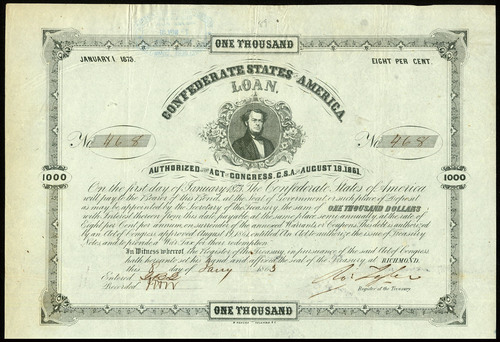 ONE THOUSAND
JANUARY 1 1873.
EIGHT PER CENT.
CONFEDERATE STATES AMERICA.
LOAN,
No 468
No 468
AUTHORIZED ACT OF CONGRESS, C.S.A. OF AUGUST 19, 1861.
1000
1000
On the first day of January 1873, The Confederate States of America
will pay to the Bearer of this Bond, at the Seat of Government or such place of Deposit
as may be appointed by the Secretary of the Treasury, the sum of ONE THOUSAND DOLLARS
with Interest thereon from this date, payable at the same place semi annually, at the rate of
Eight per Cent per annum, on surrender of the annexed Warrants or Coupons. This debt is authorized
By an Act of Congress approved August 19, 1861, entitled An Act to authorize the issue of Treasury
Notes, and to provide a War Tax for their redemption.
In Witness whereof, the Register of the Treasury, in pursuance of the said Act of Congress
hath hereunto set his hand and affixed the seal of the Treasury, at RICHMOND,
this day of Jany 1863
Entered
Recorded
Register of the Treasury
ONE THOUSAND